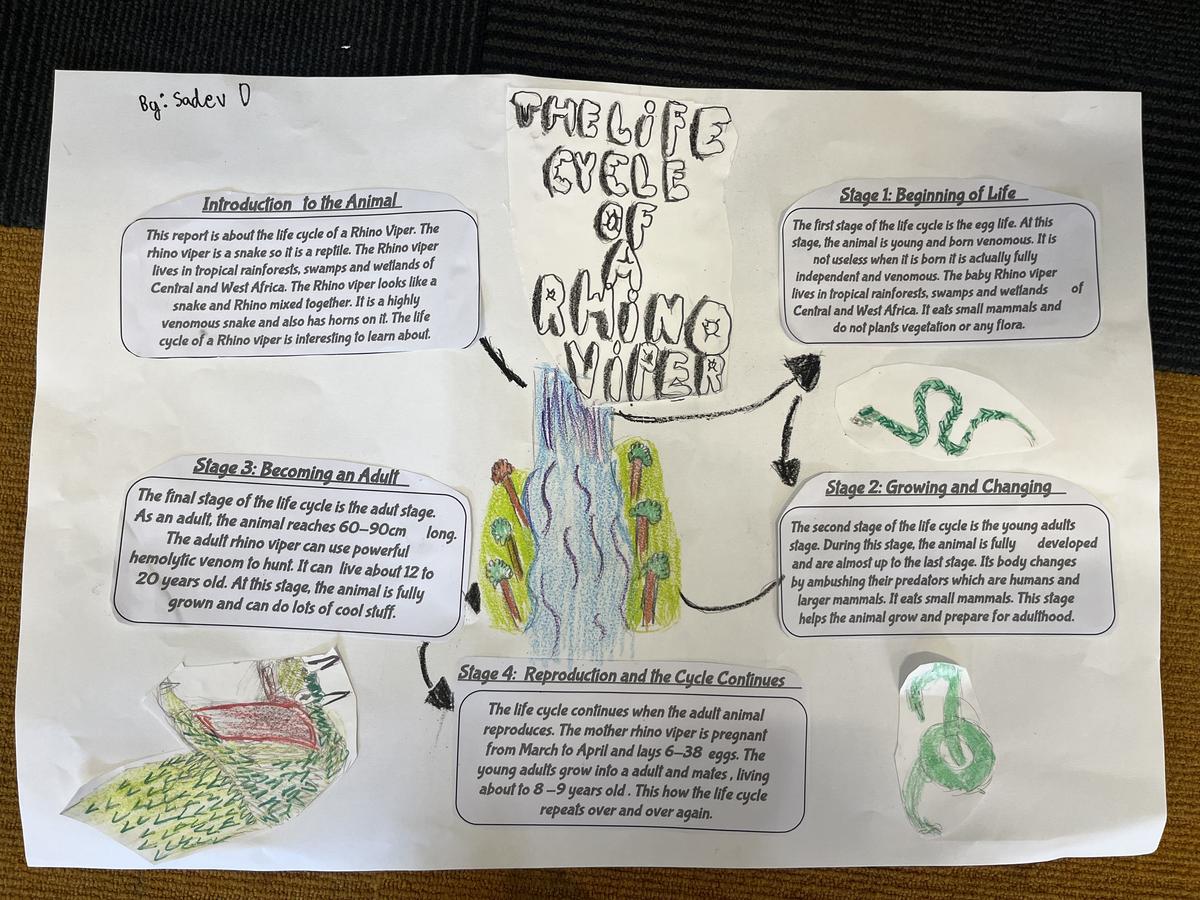 By: Sadev D
THE LIFE
CYCLE
OF
A
RHINO
VIPER
Introduction to the Animal
This report is about the life cycle of a Rhino Viper. The
rhino viper is a snake so it is a reptile. The Rhino viper
lives in tropical rainforests, swamps and wetlands of
Central and West Africa. The Rhino viper looks like a
snake and Rhino mixed together. It is a highly
venomous snake and also has horns on it. The life
cycle of a Rhino viper is interesting to learn about.
Stage 1: Beginning of Life
The first stage of the life cycle is the egg life. At this
stage, the animal is young and born venomous. It is
not useless when it is born it is actually fully
independent and venomous. The baby Rhino viper
lives in tropical rainforests, swamps and wetlands of
Central and West Africa. It eats small mammals and
do not plants vegetation or any flora.
Stage 2: Growing and Changing
The second stage of the life cycle is the young adults
stage. During this stage, the animal is fully developed
and are almost up to the last stage. Its body changes
by ambushing their predators which are humans and
larger mammals. It eats small mammals. This stage
helps the animal grow and prepare for adulthood.
Stage 3: Becoming an Adult
The final stage of the life cycle is the adut stage.
As an adult, the animal reaches 60–90cm long.
The adult rhino viper can use powerful
hemolytic venom to hunt. It can live about 12 to
20 years old. At this stage, the animal is fully
grown and can do lots of cool stuff.
Stage 4: Reproduction and the Cycle Continues
The life cycle continues when the adult animal
reproduces. The mother rhino viper is pregnant
from March to April and lays 6–38 eggs. The
young adults grow into a adult and mates , living
about to 8 –9 years old . This how the life cycle
repeats over and over again.